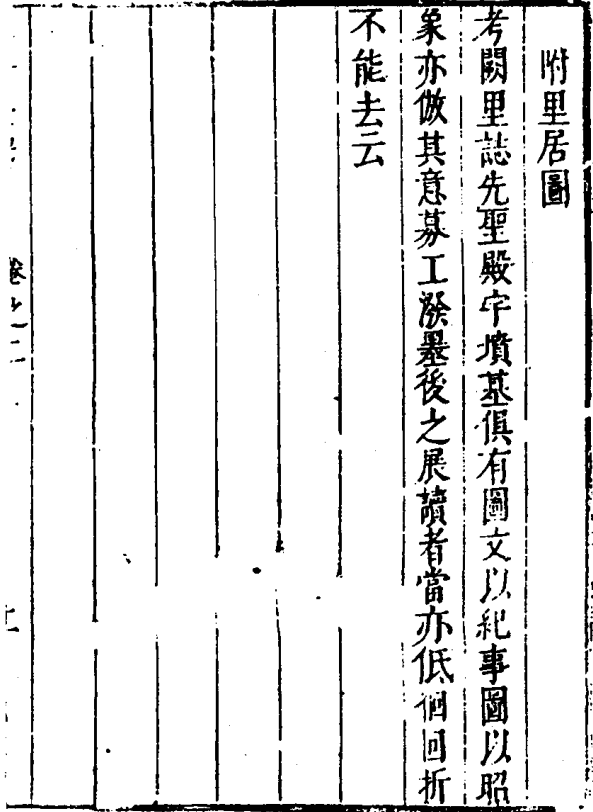 附里居圖
考闕里誌先聖殿宇墳基俱有圖文以紀事圖以昭
象亦倣其意募工潑墨後之展讀者當亦低佪回折
不能去云
卷之二